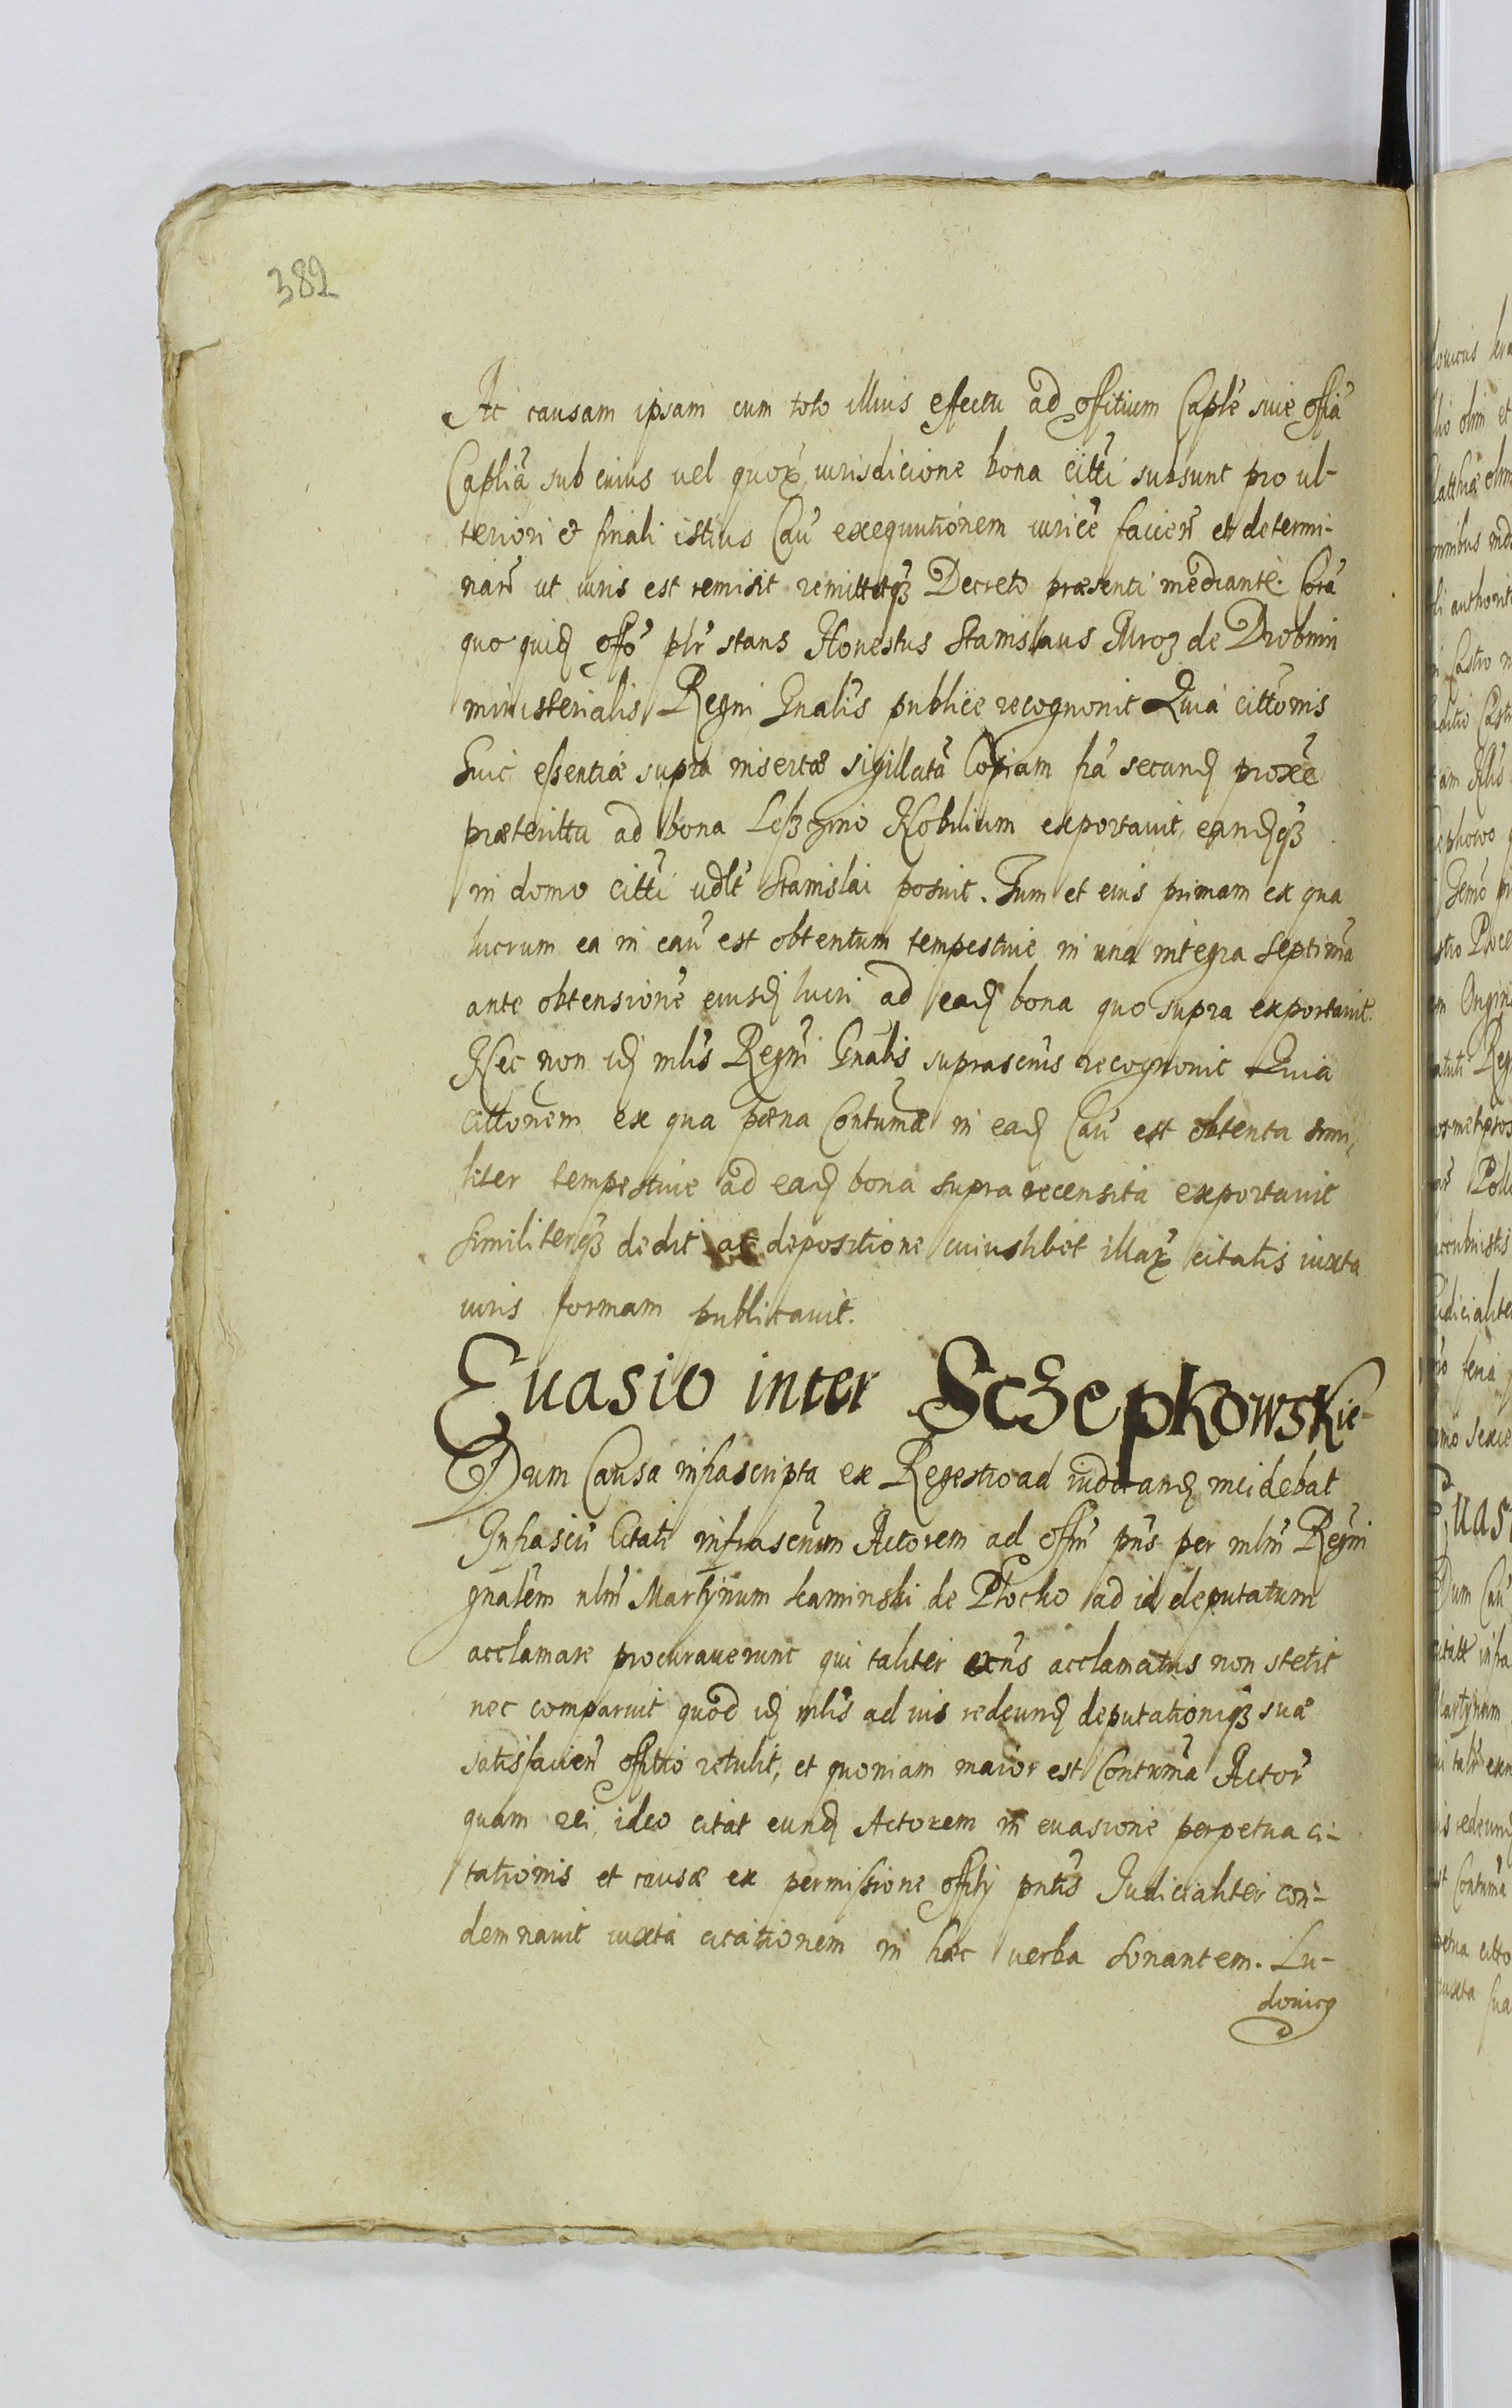 382
Ac causam ipsam cum toto illius effectu ad offitium Caplē siue offiā
Capliā sub cuius uel quorȝ iurisdicione bona citti subsunt pro ul-
teriori & finali istius Cāu exequutionem iuricē faciēn et determi-
nān ut iuris est remisit remittitqȝ Decreto præsenti mediante. Corā
quo quidȝ offō plr̄ stans Honestus Stanislaus Mroz de Drobnin
ministerialis Regni Gnalis publice recognouit Quia cittonis
huic essentiæ supra insertæ sigillatā Copiam fr̄a secundȝ proxē
præteritta ad bona Leszczino Nobilium exportauit, eandȝqȝ
in domo citti udlt Stanislai posuit. Tum et eius primam ex qua
lucrum ea in cau est obtentum tempestiue in una integra septimā
ante obtensione eiusdȝ lucri ad eadȝ bona quo supra exportauit.
Nec non idȝ mlis Regni Gnalis suprascrius recognouit Quia
cittonem ex qua pæna Contumā in eadȝ Cau est obtenta simi-
liter tempestiue ad eadȝ bona supra recensita exportauit
Similiterqȝ dedit ac depositione cuiuslibet illarȝ citatis iuxta
iuris formam publicauit.
Euasio inter Sczepkowskie-
Dum Causa infrascripta ex Regestro ad iudicandȝ incidebat
Infrascri Citati infrascrium Actorem ad offm pns per mlm Regni
gnalem nlm Martynum Kaminski de Plocko ad id deputatum
acclamare procurauerunt qui taliter exns acclamatus non stetit
nec comparuit quod idȝ mlis ad ius redeundȝ deputationiqȝ suæ
satisfacien offitio retulit, et quoniam maior est Contumā Actor
quam rei, ideo citat eundȝ Actorem in euasione perpetua ci-
tationis et causæ ex permissione offity pntis Judicialiter con-
demnauit iuxta citationem in hæc uerba sonantem. Lu-
douicȝ